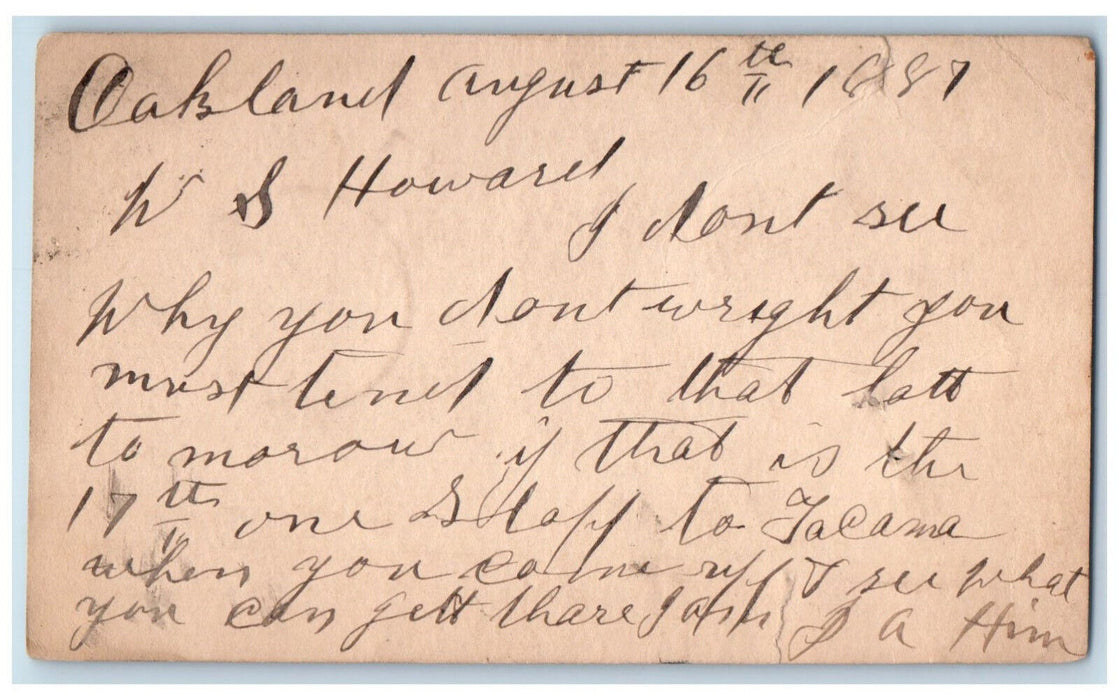 Oakland August 16th 1887
W S Howard
I dont see
Why you dont wright you
must tend to that latt
to morow if that is the
17th one Stopp to Tacama
when you come up & see what
you can gett thare